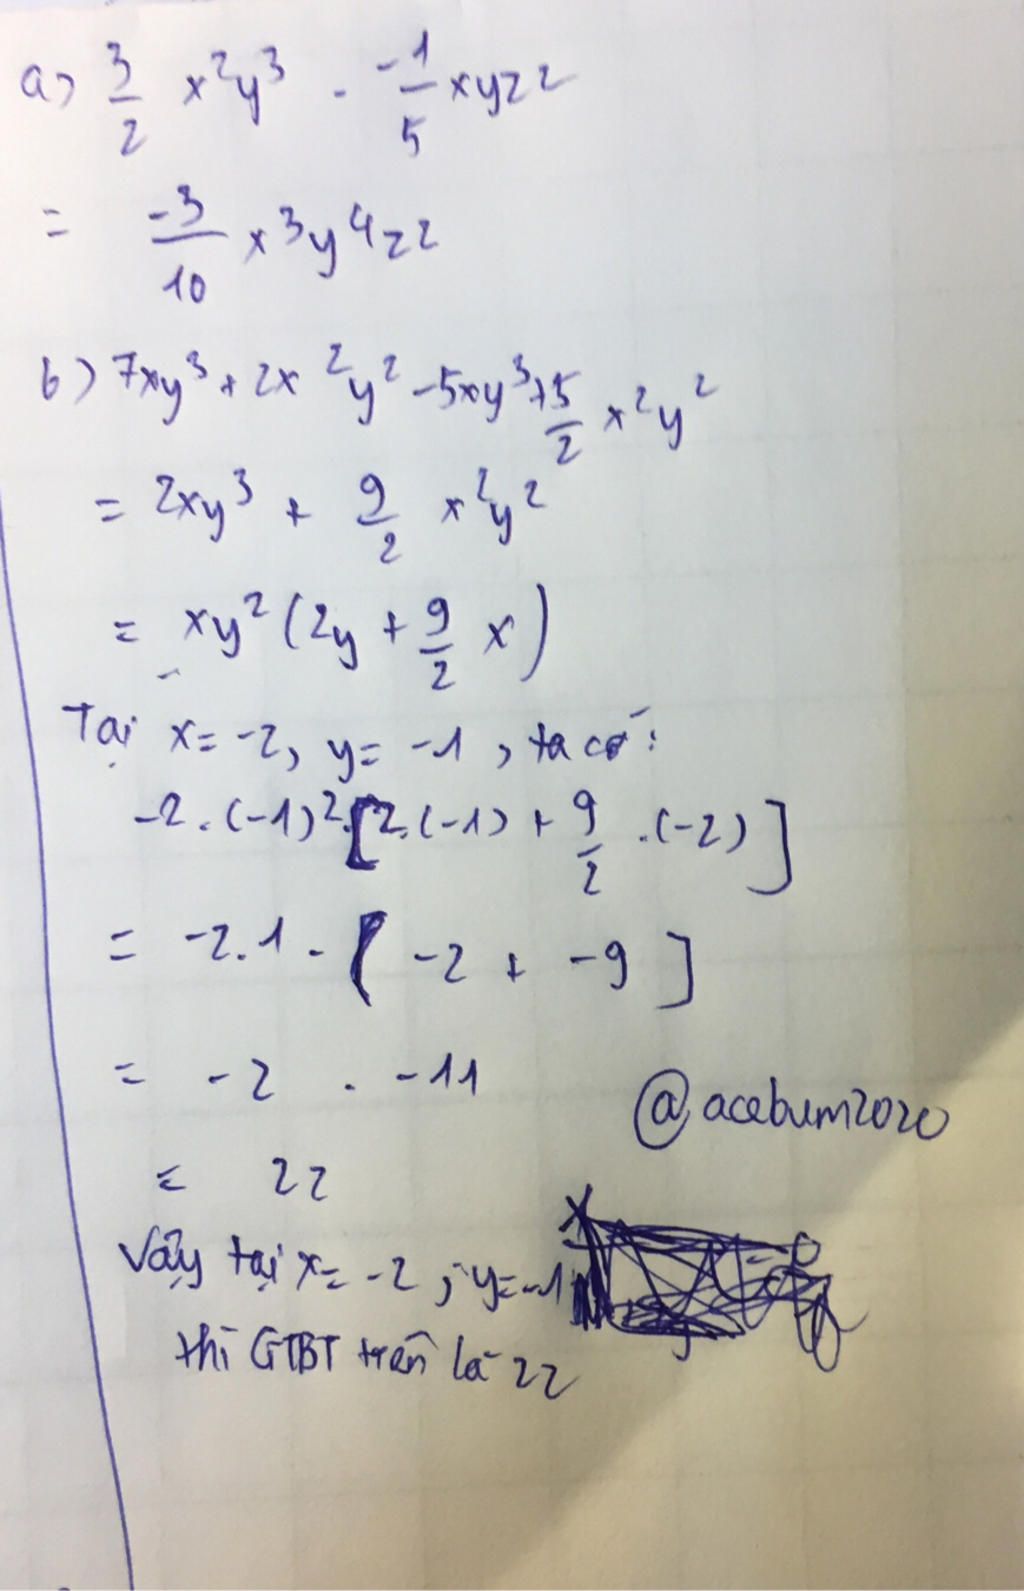 a) 3/2 x²y³ . -1/5 xyz²
= -3/10 x³y⁴z²
b) 7xy³ + 2x²y² - 5xy³ + 5/2 x²y²
= 2xy³ + 9/2 x²y²
= xy² (2y + 9/2 x)
Tại x = -2, y = -1, ta có:
-2 . (-1)² . [2.(-1) + 9/2 . (-2)]
= -2.1 . [-2 + -9]
= -2 . -11
@acebum2020
= 22
Vậy tại x = -2 ; y = -1
thì GTBT trên là 22